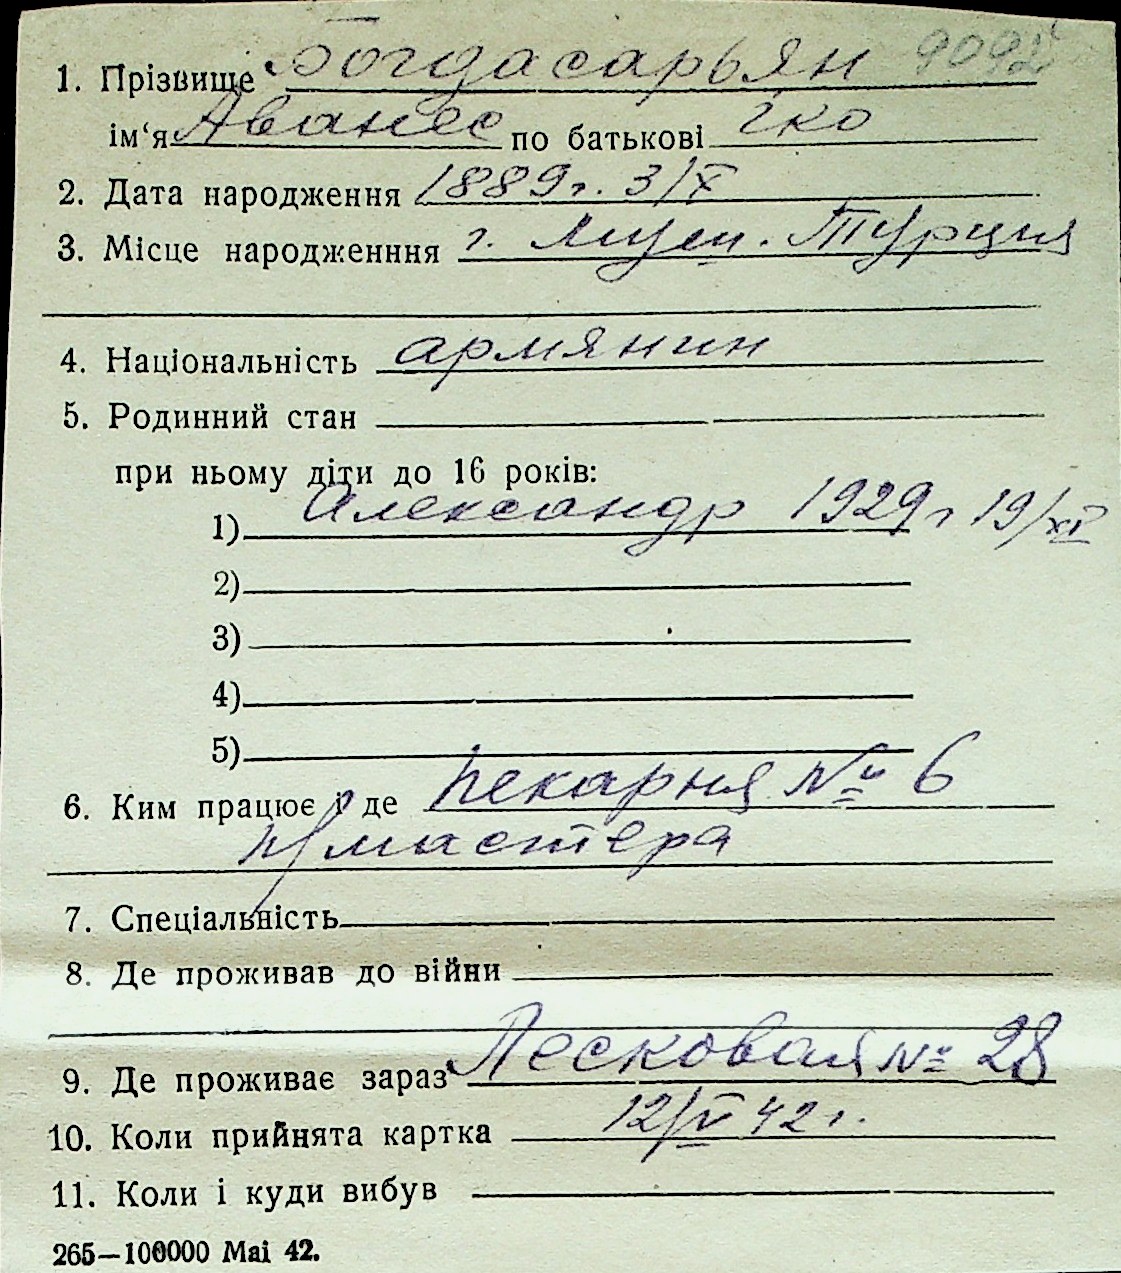 1. Прізвище Богдасарьян 9092
ім‘я Аванес по батькові
2. Дата народження 1889 г. 3/X
3. Місце народженння г. Муш. Турция
4. Національність армянин
5. Родинний стан
при ньому діти до 16 років:
1) Александр 1929 г 19/XI
2)
3)
4)
5)
6. Ким працює і де пекарня № 6
п/мастера
7. Спеціальність
8. Де проживав до війни
9. Де проживає зараз Лесковая № 28
10. Коли прийнята картка 12/V 42 г.
11. Коли і куди вибув
265—100000 Mai 42.